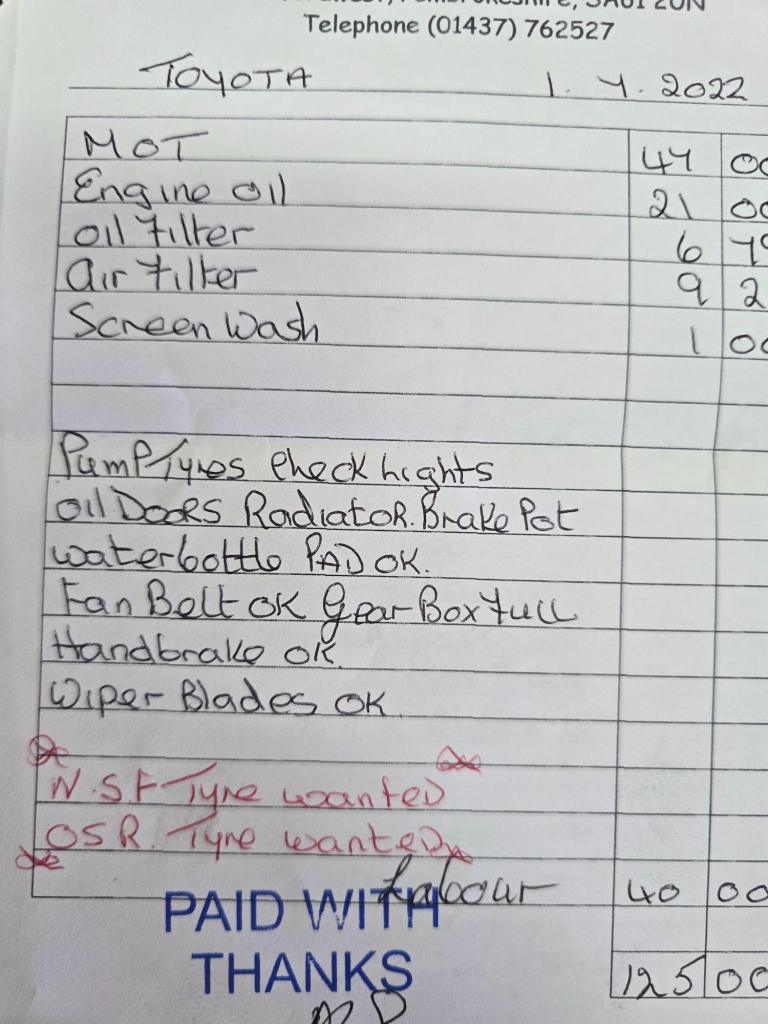 Pembrokeshire, SA61 2UN
Telephone (01437) 762527
TOYOTA 1. 7. 2022
MOT 47 00
Engine oil 21 00
oil Filter 6 79
air Filter 9 2
Screen Wash 1 00
Pump Tyres Check Lights
oil Doors Radiator. Brake Pot
waterbottle PAD OK.
Fan Belt OK Gear Box Full
Handbrake OK.
Wiper Blades OK.
N.S.F Tyre wanted
OSR. Tyre wanted
Labour 40 00
PAID WITH
THANKS
125 00